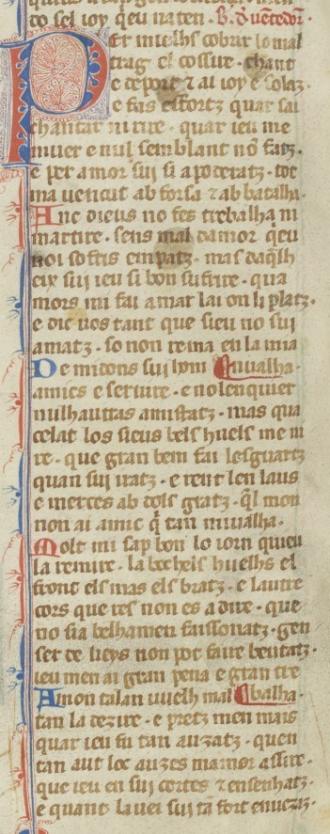 co sel ioy qeu naten. B. d uẽtedor.
Per miels cobrir lo mal
trag el cossire. chant
e deport 7 ai ioy e solaz.
e fas esfortz quar sai
chantar ni rire. quar ieu me
muer e nul semblant nõ fatz.
e per amor sui si apoderatz. tot
ma uencut ab forsa 7 ab batalha.
Anc dieus no fes trebalha ni
martire. sens mal damor qeu
noi sofris en patz. mas daqelh
eix sui ieu si bon sufrire. qua
mors mi fai amar lai on li platz.
e dic uos tant que sieu no sui
amatz. so non rema en la mia
De midons sui hom nualha.
amics e seruire. e no len quier
nulhautras amistatz. mas qua
celat los sieus bels huels me ui
re. que gran bem fai lesguartz
quan sui iratz. e rent len laus
e merces ab dols gratz. ql mon
non ai amic q̃ tan mi ualha.
Molt mi sap bon lo iorn quieu
la remire. la bochels huelhs el
front els mas els bratz. e lautre
cors que res non es a dire. que
no sia belhamen faissonatz. gen
ser de lieys non poc faire beutatz.
ieu men ai gran pena e gran tre
A mon talan vuelh mal balha.
tan la dezire. e pretz men mais
quar ieu fu tan auzatz. quen
tan aut loc auzes mamor assire.
que ieu en sui cortes 7 ensenhatz.
e quant la uei sui ta fort enuezatz.